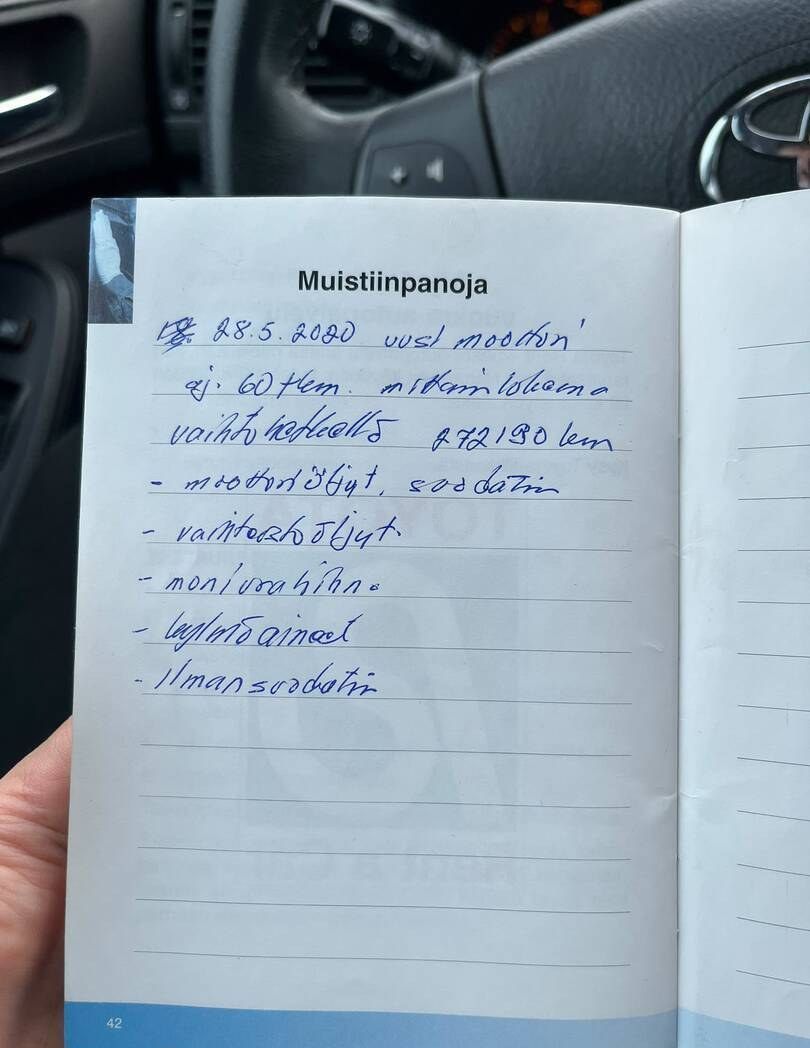 Muistiinpanoja
28.5.2020 uusi moottori
aj. 60 tkm. mittarilukema
vaihtohetkellä 272190 km
- moottoriöljyt, suodatin
- vaihteistoöljyt.
- moniurahihna
- kylmäaineet
- Ilmansuodatin
42